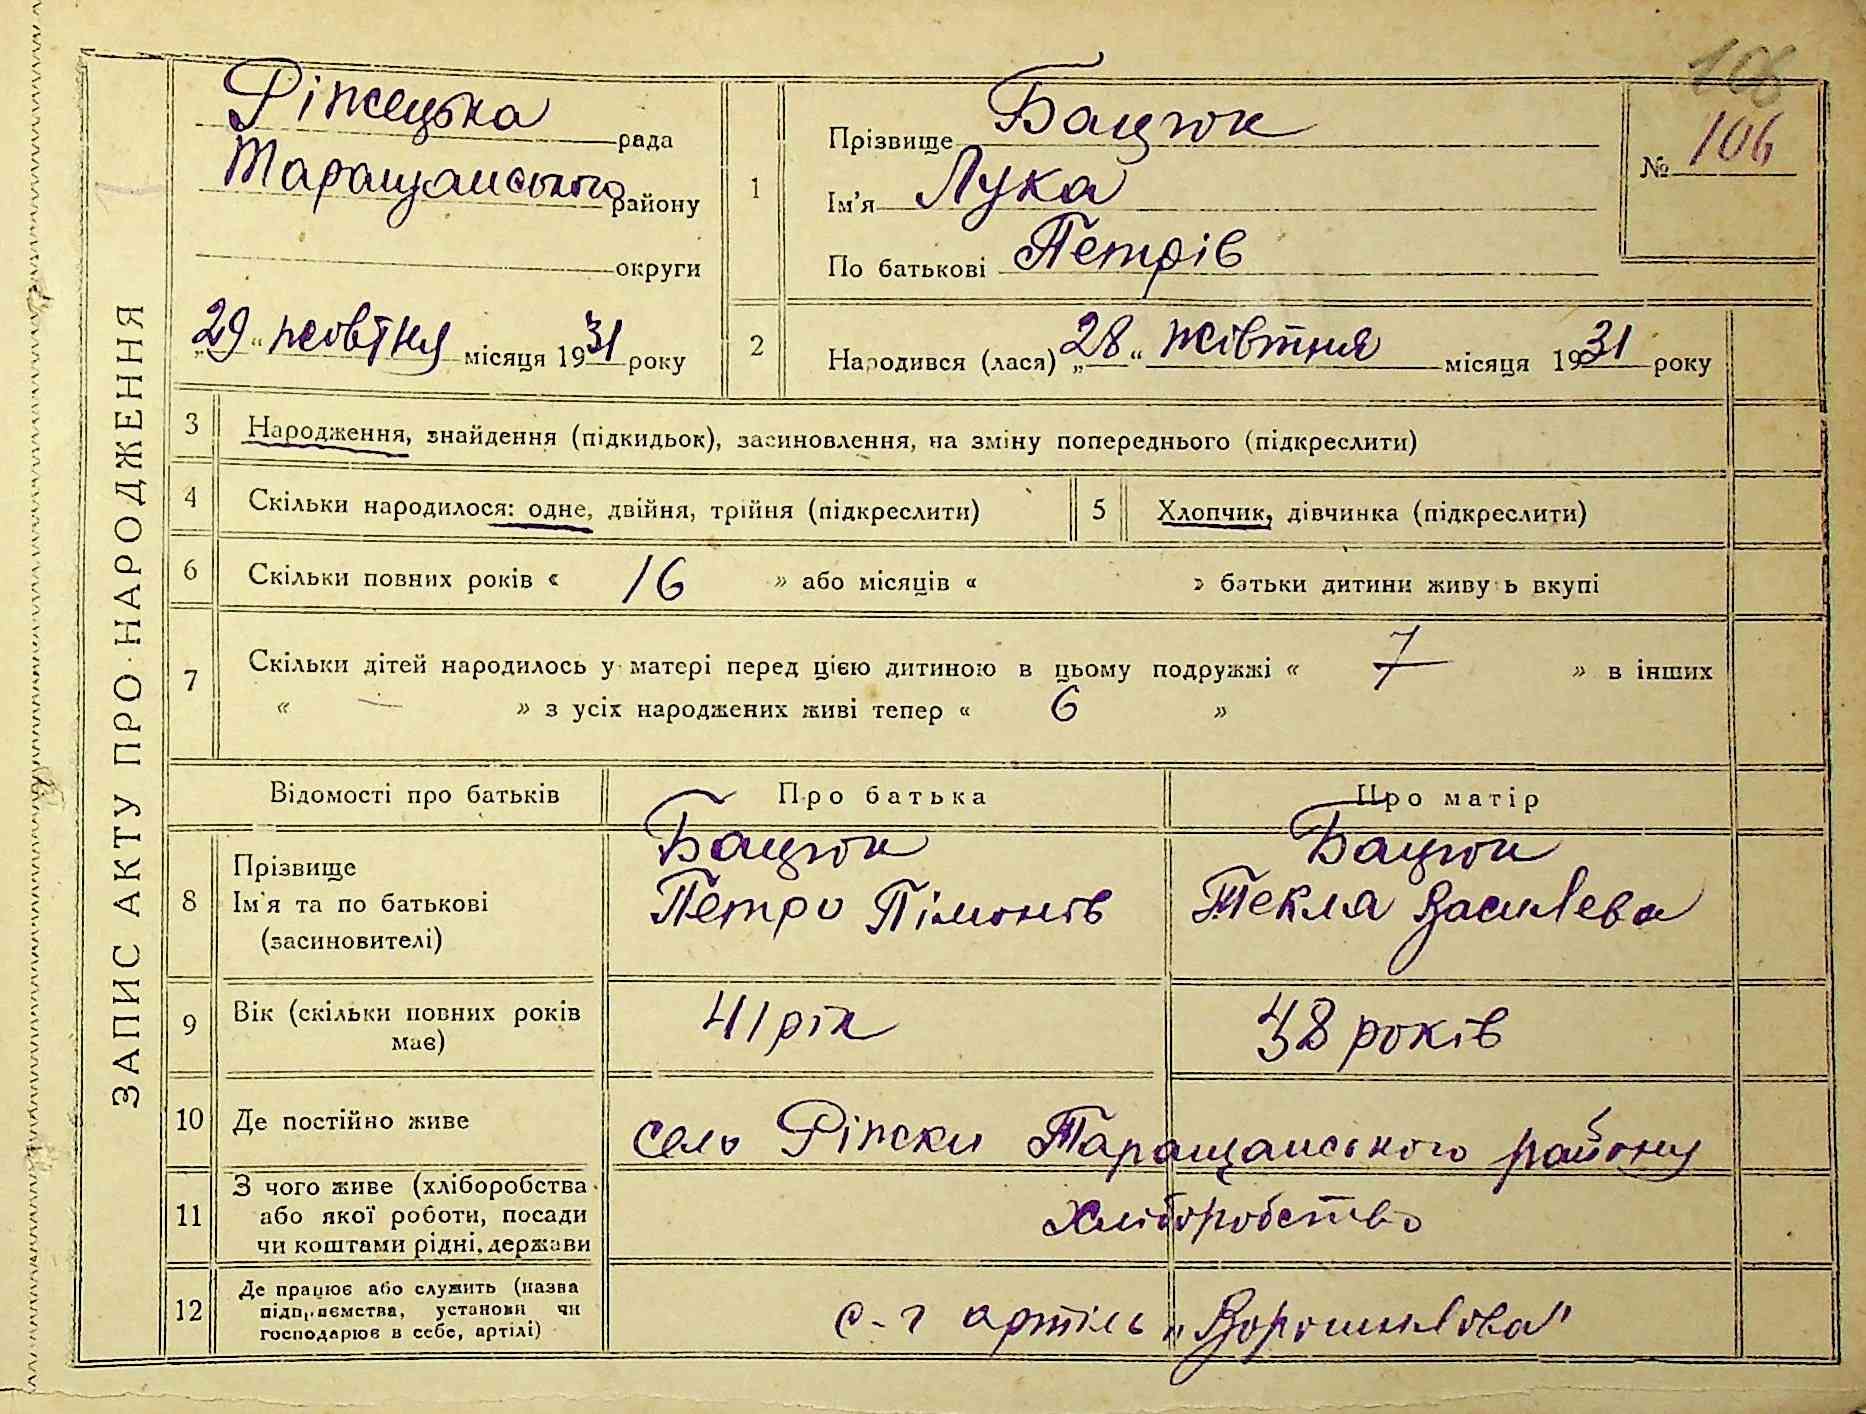 ЗАПИС АКТУ ПРО НАРОДЖЕННЯ
106
Ріжецька рада
Таращанського району
округи
„29“ жовтня місяця 1931 року
1
Прізвище Бацюк
Ім'я Лука
По батькові Петрів
№ 106
2
Народився (лася) „28“ жівтня місяця 1931 року
3 Народження, знайдення (підкидьок), засиновлення, на зміну попереднього (підкреслити)
4 Скільки народилося: одне, двійня, трійня (підкреслити)
5 Хлопчик, дівчинка (підкреслити)
6 Скільки повних років « 16 » або місяців « » батьки дитини живу ь вкупі
7 Скільки дітей народилось у матері перед цією дитиною в цьому подружжі « 7 » в інших
« — » з усіх народжених живі тепер « 6 »
Відомості про батьків Про батька Про матір
8 Прізвище
Ім'я та по батькові
(засиновителі)
Бацюк
Петро Пімонів
Бацюк
Текла Василева
9 Вік (скільки повних років
має)
41 рік
38 років
10 Де постійно живе
село Ріжки Таращанського району
11 З чого живе (хліборобства
або якої роботи, посади
чи коштами рідні, держави
Хліборобство
12 Де працює або служить (назва
підприємства, установи чи
господарює в себе, артілі)
с-г артіль „Ворошилова"